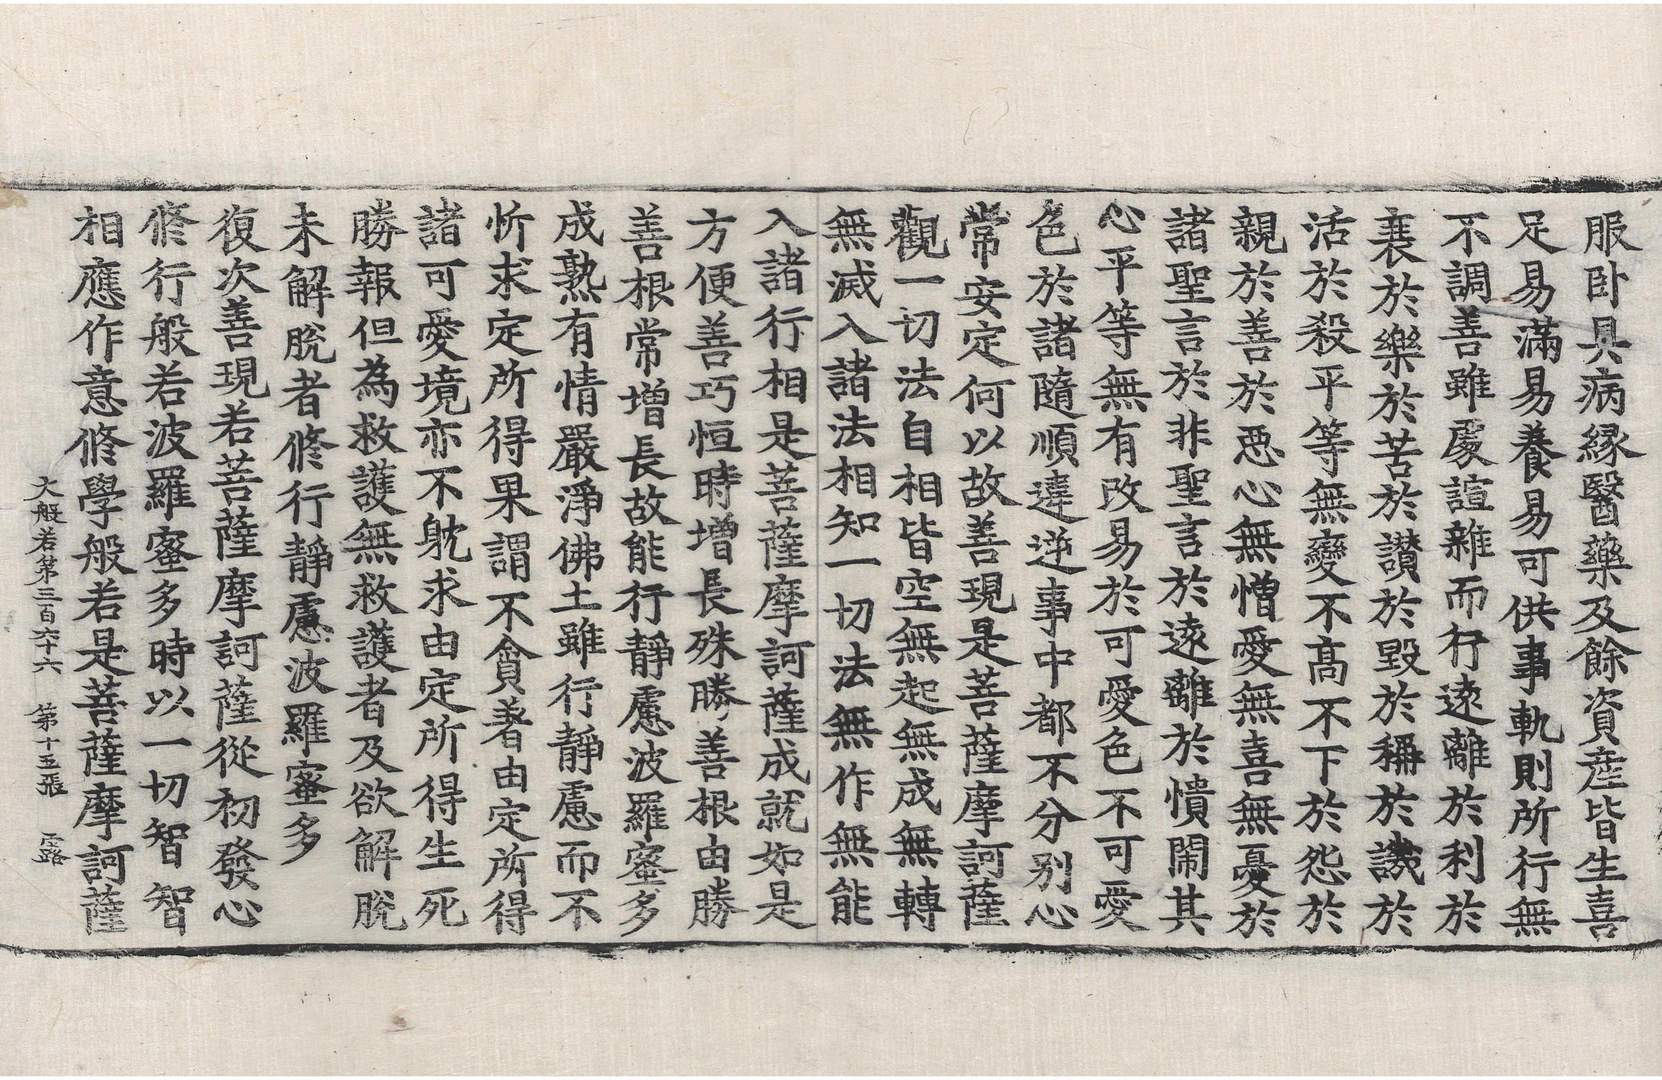 服卧具病緣醫藥及餘資產皆生喜
足易滿易養易可供事軌則所行無
不調善雖處諠雜而行遠離於利於
衰於樂於苦於讃於毀於稱於譏於
活於殺平等無變不高不下於怨於
親於善於惡心無憎愛無喜無憂於
諸聖言於非聖言於遠離於憒鬧其
心平等無有改易於可愛色不可愛
色於諸隨順違逆事中都不分別心
常安定何以故善現是菩薩摩訶薩
觀一切法自相皆空無起無成無轉
無滅入諸法相知一切法無作無能
入諸行相是菩薩摩訶薩成就如是
方便善巧恒時增長殊勝善根由勝
善根常增長故能行靜慮波羅蜜多
成熟有情嚴淨佛土雖行靜慮而不
忻求定所得果謂不貪著由定所得
諸可愛境亦不躭求由定所得生死
勝報但為救護無救護者及欲解脫
未解脫者修行靜慮波羅蜜多
復次善現若菩薩摩訶薩從初發心
修行般若波羅蜜多時以一切智智
相應作意修學般若是菩薩摩訶薩
大般若第三百六十六 第十五張